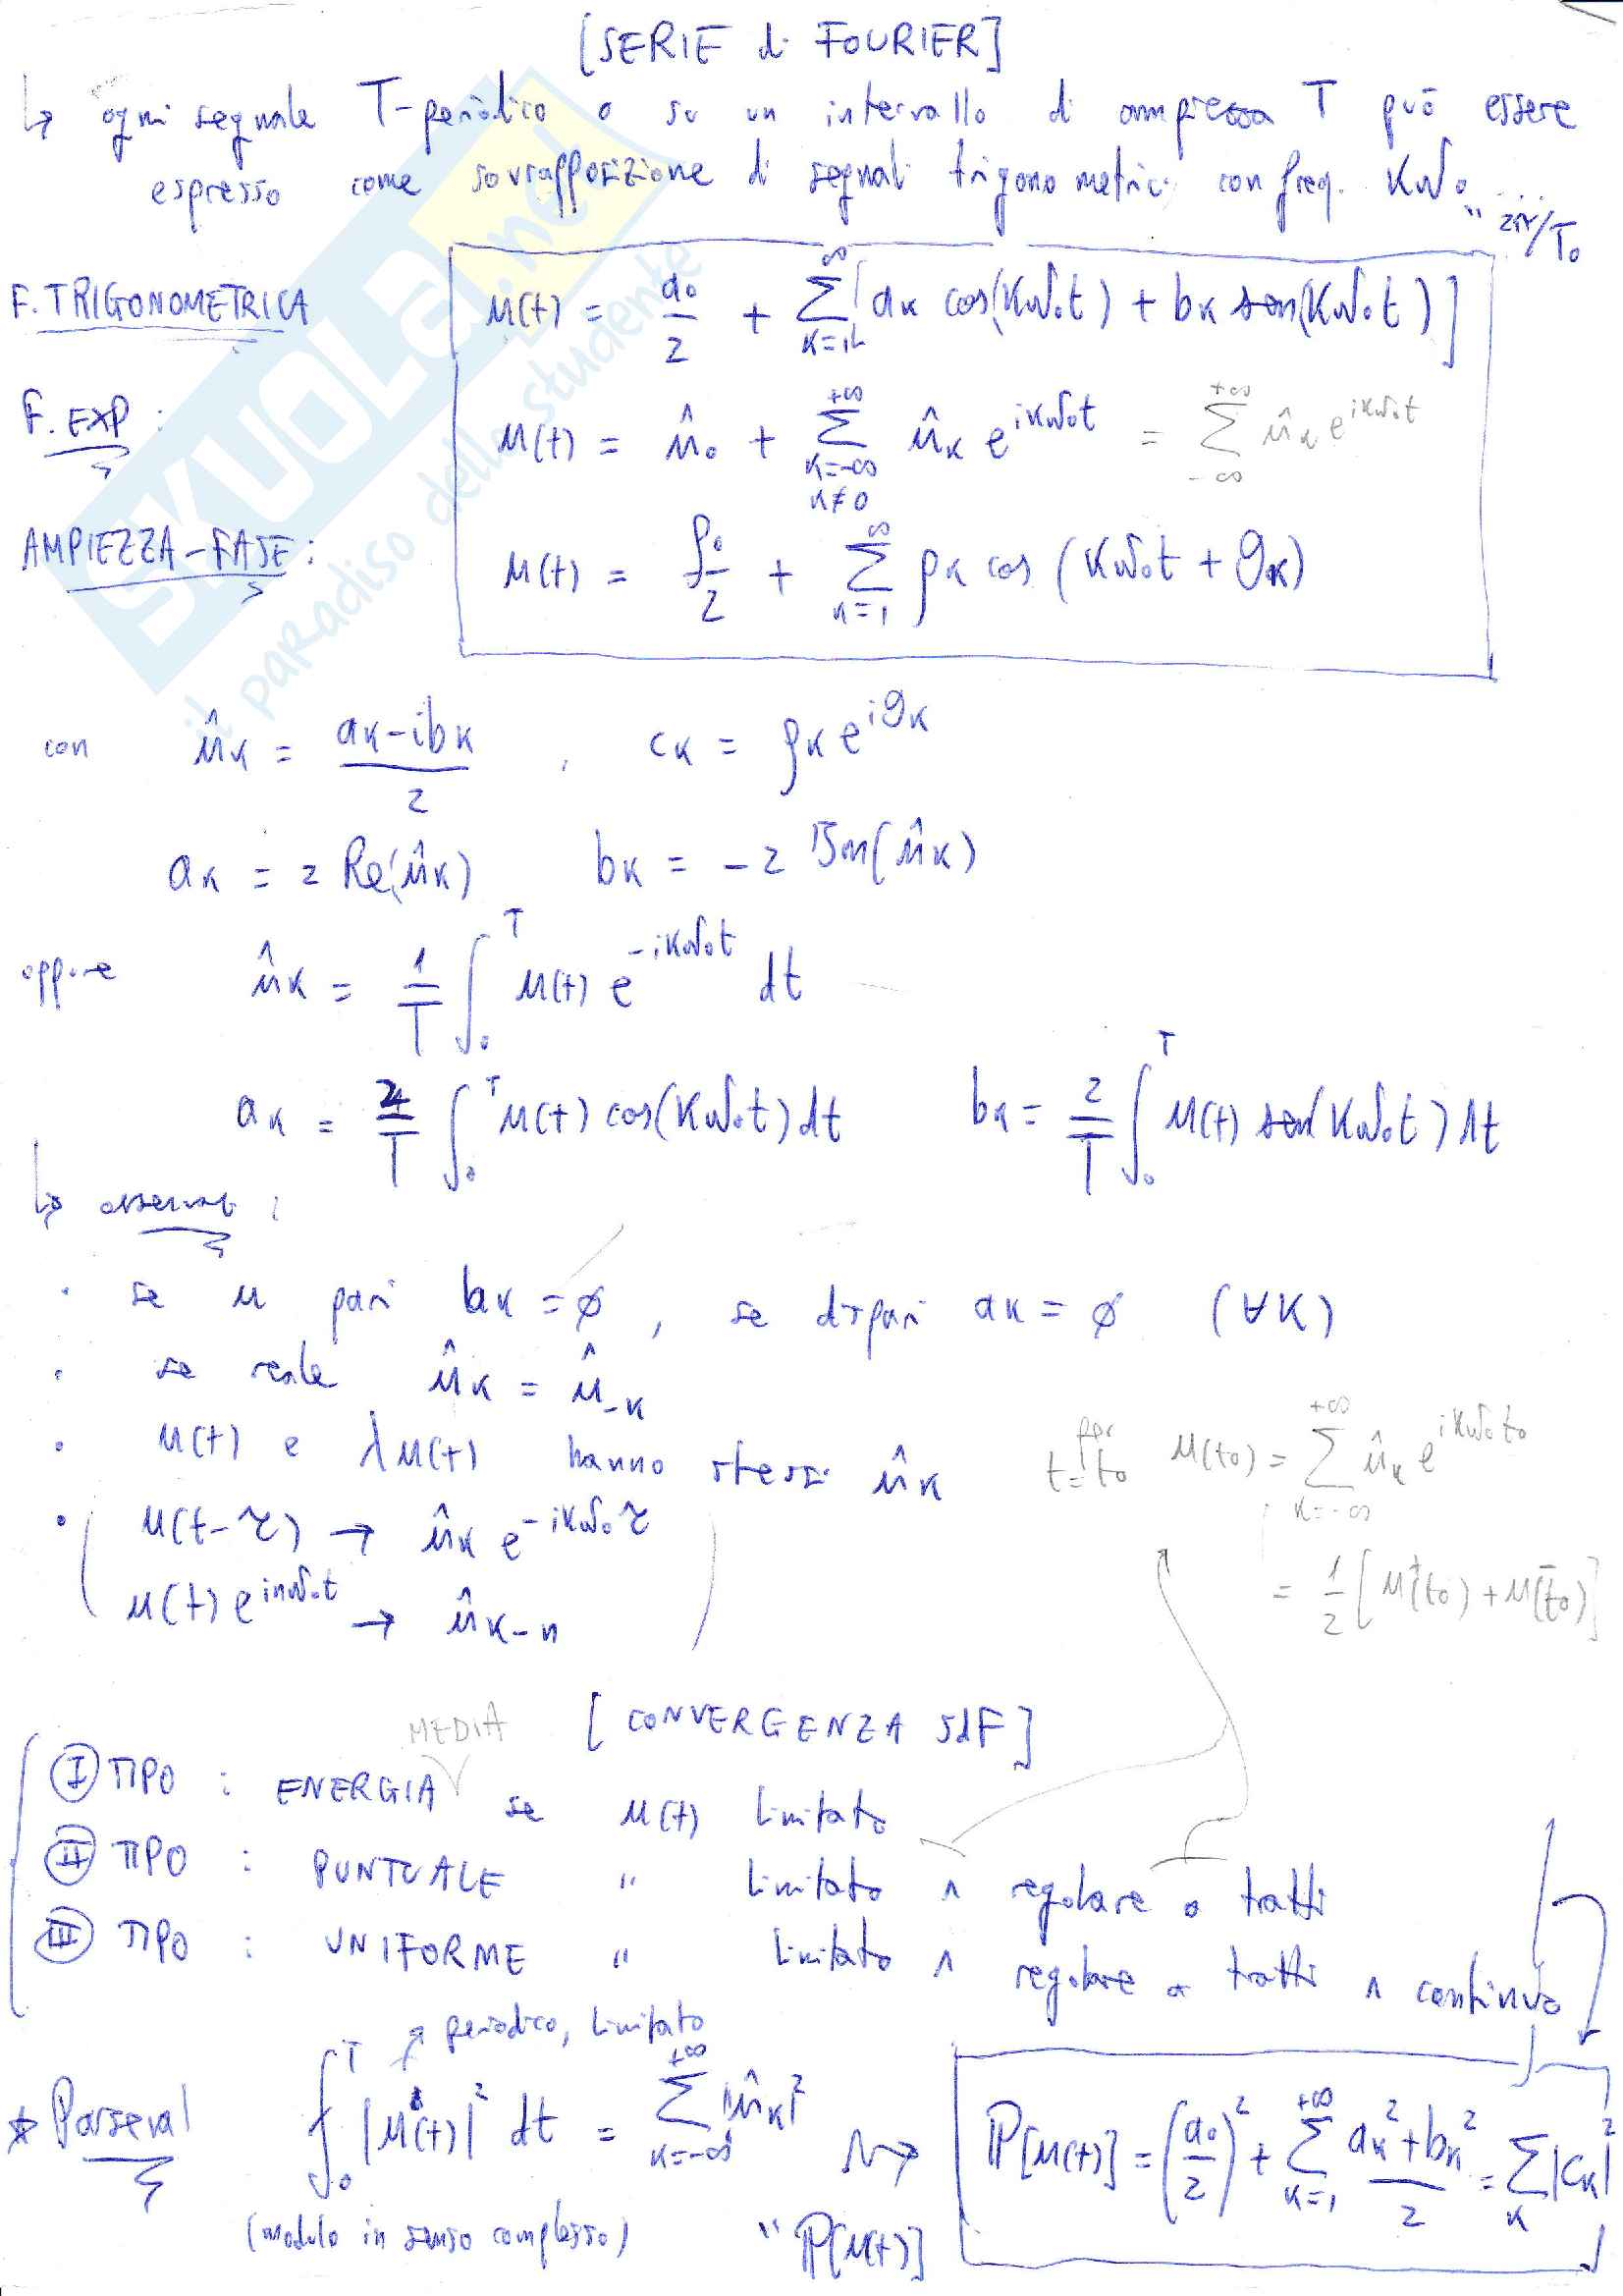 [SERIE di FOURIER]
↳ ogni segnale T-periodico o su un intervallo di ampiezza T può essere
espresso come sovrapposizione di segnali trigonometrici con freq. kω₀ ...
" 2π/T₀
F. TRIGONOMETRICA u(t) = a₀/2 + Σ_{k=1}^{∞} [aₖ cos(kω₀t) + bₖ sen(kω₀t)]
F. EXP : u(t) = û₀ + Σ_{k=-∞, k≠0}^{+∞} ûₖ e^{ikω₀t} = Σ_{-∞}^{+∞} ûₖ e^{ikω₀t}
AMPIEZZA-FASE : u(t) = ρ₀/2 + Σ_{k=1}^{∞} ρₖ cos (kω₀t + ϑₖ)
con ûₖ = (aₖ-ibₖ)/2 , cₖ = ρₖ e^{iϑₖ}
aₖ = 2 Re(ûₖ) bₖ = -2 Im(ûₖ)
oppure ûₖ = 1/T ∫₀^T u(t) e^{-ikω₀t} dt
aₖ = 2/T ∫₀^T u(t) cos(kω₀t) dt bₖ = 2/T ∫₀^T u(t) sen(kω₀t) dt
↳ osservaz :
· se u pari bₖ = ∅ , se dispari aₖ = ∅ (∀k)
· se reale ûₖ = û₋ₖ
· u(t) e λu(t) hanno stessi ûₖ
per t=t₀ u(t₀) = Σ_{k=-∞}^{+∞} ûₖ e^{ikω₀t₀}
· u(t-τ) → ûₖ e^{-ikω₀τ}
= 1/2 [u(t₀⁺) + u(t₀⁻)]
u(t) e^{inω₀t} → û_{k-n}
[CONVERGENZA SdF]
MEDIA
I TIPO : ENERGIA se u(t) limitato
II TIPO : PUNTUALE " limitato ∧ regolare a tratti
III TIPO : UNIFORME " limitato ∧ regolare a tratti ∧ continuo
↗ periodico, limitato
* Parseval ∫₀^T |u(t)|² dt = Σ_{k=-∞}^{+∞} |ûₖ|² ⇝ P[u(t)] = (a₀/2)² + Σ_{k=1}^{+∞} (aₖ²+bₖ²)/2 = Σₖ |cₖ|²
(modulo in senso complesso) " P[u(t)]
SKUOLA.net
il paradiso dello studente